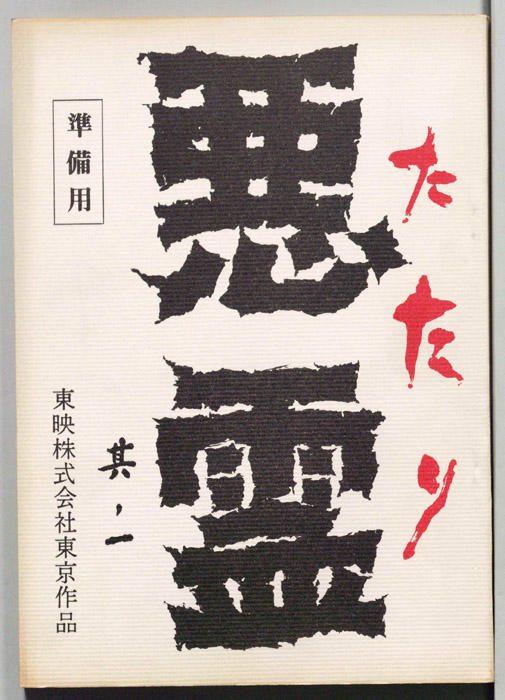 たたり
悪霊
其ノ一
準備用
東映株式会社東京作品